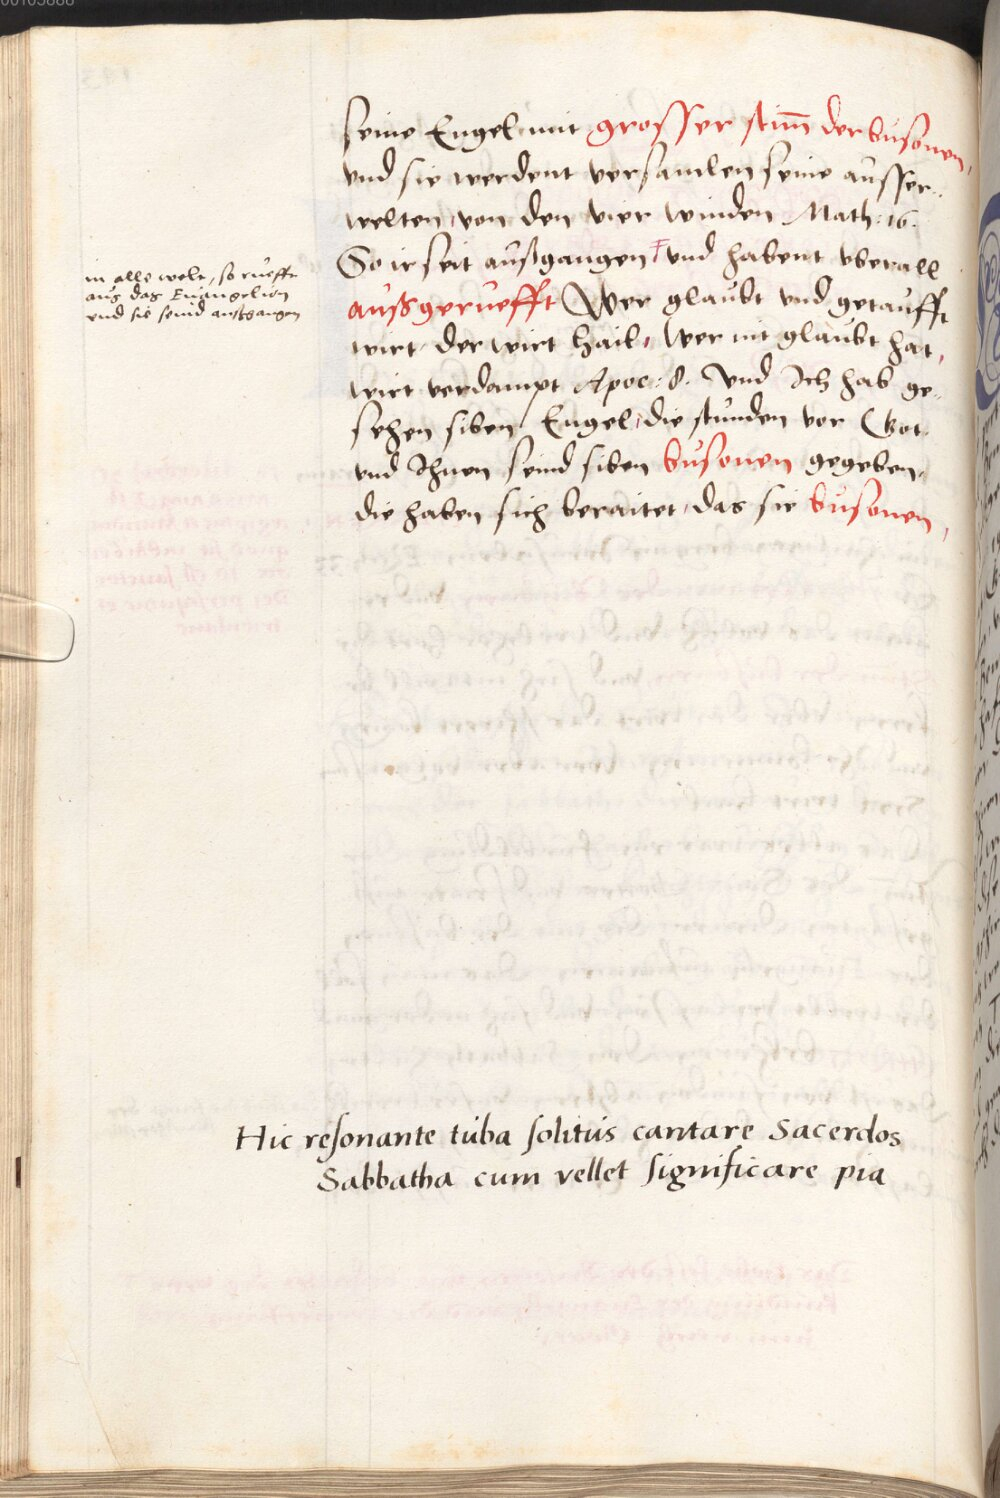 seine Engel mit grosser stim̄ der busonen,
vnd sie werdent versamlen seine ausser..
welten von den vier winden Math: 16.
So ir seit außgangen † vnd habent vberall
in alle welt, so ruefft
aus das Euangelion
vnd sie seind außgangen
außgeruefft Wer glaubt vnd getaufft
wirt der wirt hail, Wer nit glaubt hat,
wirt verdampt Apoc: 8. Vnd Ich hab ge..
sehen siben Engel, die stunden vor Got
vnd Ihnen seind siben busonen gegeben,
die haben sich beraitet, das sie busonen,
Hic resonante tuba solitus cantare Sacerdos
Sabbatha cum vellet significare pia